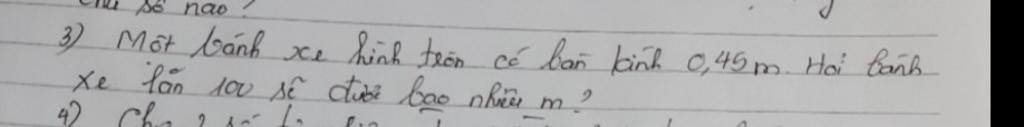 số nào?
3) Một bánh xe hình tròn có bán kính 0,45m. Hỏi bánh
xe lăn 100 sẽ được bao nhiêu m?
4)